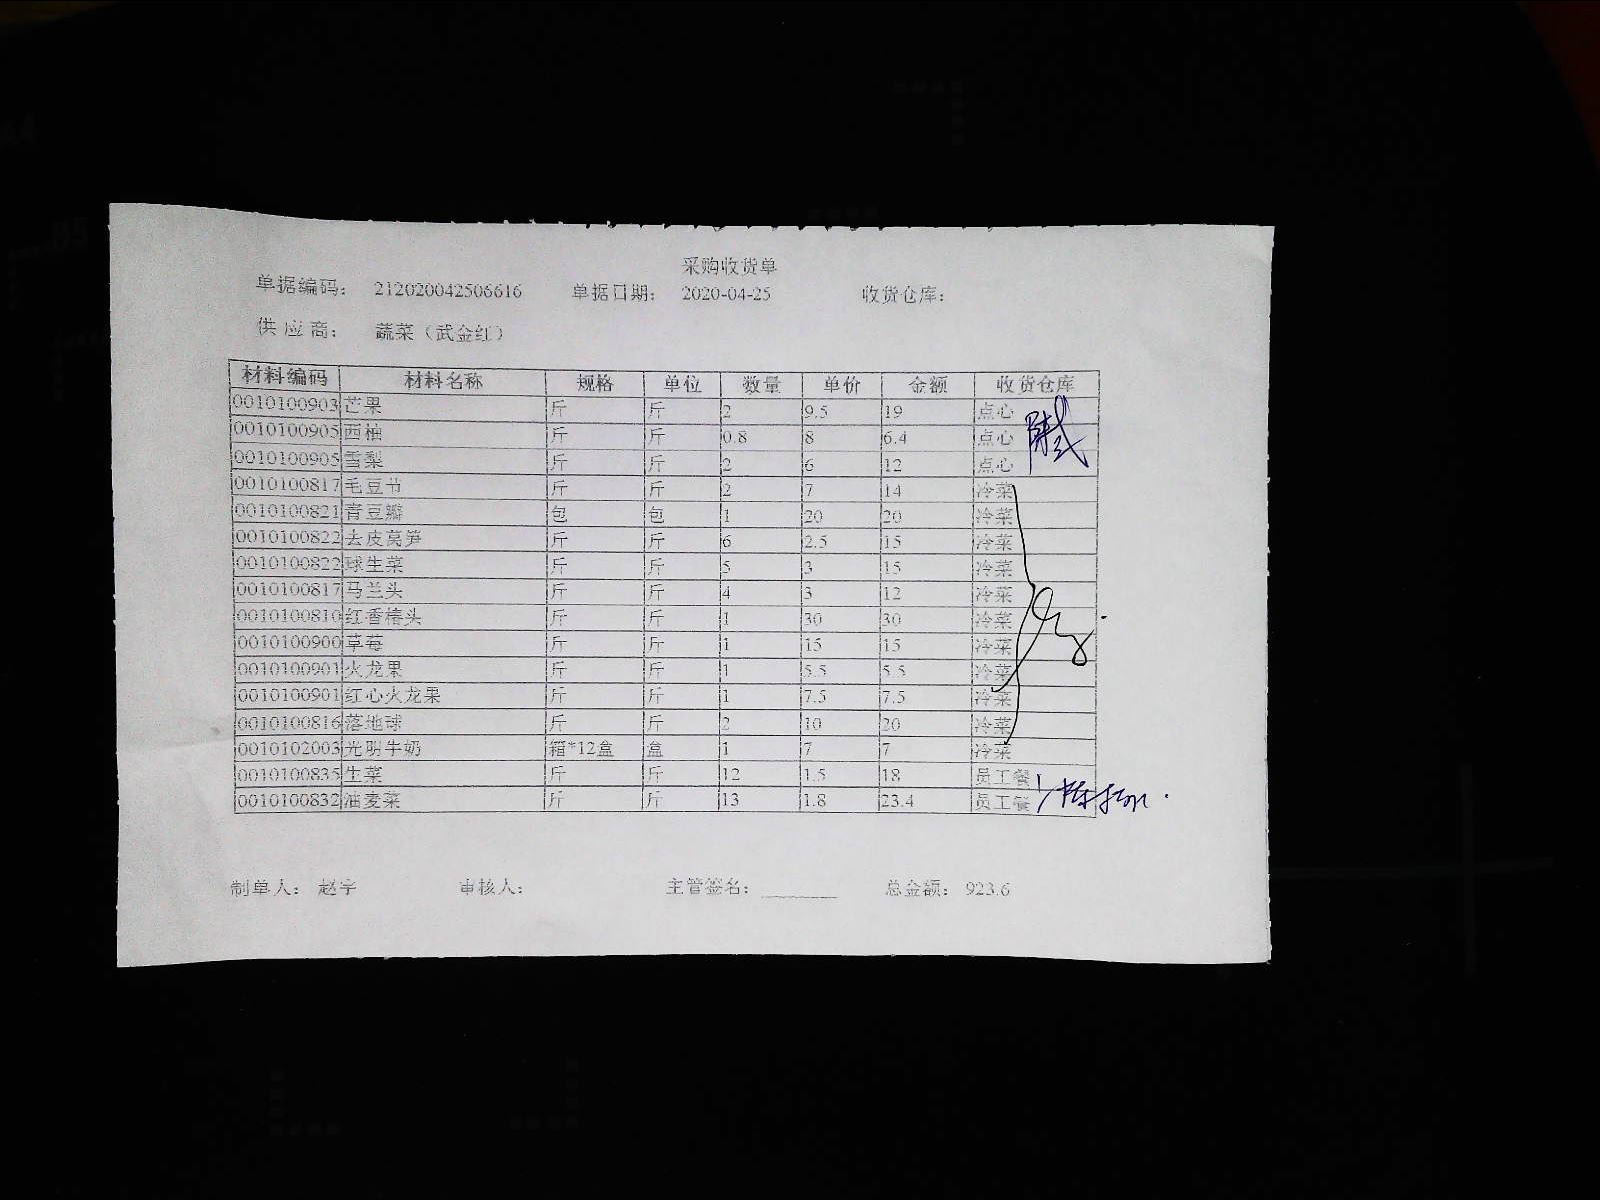 采购收货单
单据编码: 212020042506616 单据日期: 2020-04-25 收货仓库:
供应商: 蔬菜（武金红）
材料编码 材料名称 规格 单位 数量 单价 金额 收货仓库
0010100903 芒果 斤 斤 2 9.5 19 点心
0010100905 西柚 斤 斤 0.8 8 6.4 点心
0010100905 雪梨 斤 斤 2 6 12 点心
0010100817 毛豆节 斤 斤 2 7 14 冷菜
0010100821 青豆瓣 包 包 1 20 20 冷菜
0010100822 去皮莴笋 斤 斤 6 2.5 15 冷菜
0010100822 球生菜 斤 斤 5 3 15 冷菜
0010100817 马兰头 斤 斤 4 3 12 冷菜
0010100810 红香椿头 斤 斤 1 30 30 冷菜
0010100900 草莓 斤 斤 1 15 15 冷菜
0010100901 火龙果 斤 斤 1 5.5 5.5 冷菜
0010100901 红心火龙果 斤 斤 1 7.5 7.5 冷菜
0010100816 落地球 斤 斤 2 10 20 冷菜
0010102003 光明牛奶 箱*12盒 盒 1 7 7 冷菜
0010100835 生菜 斤 斤 12 1.5 18 员工餐
0010100832 油麦菜 斤 斤 13 1.8 23.4 员工餐
制单人: 赵宇 审核人: 主管签名: ________ 总金额: 923.6